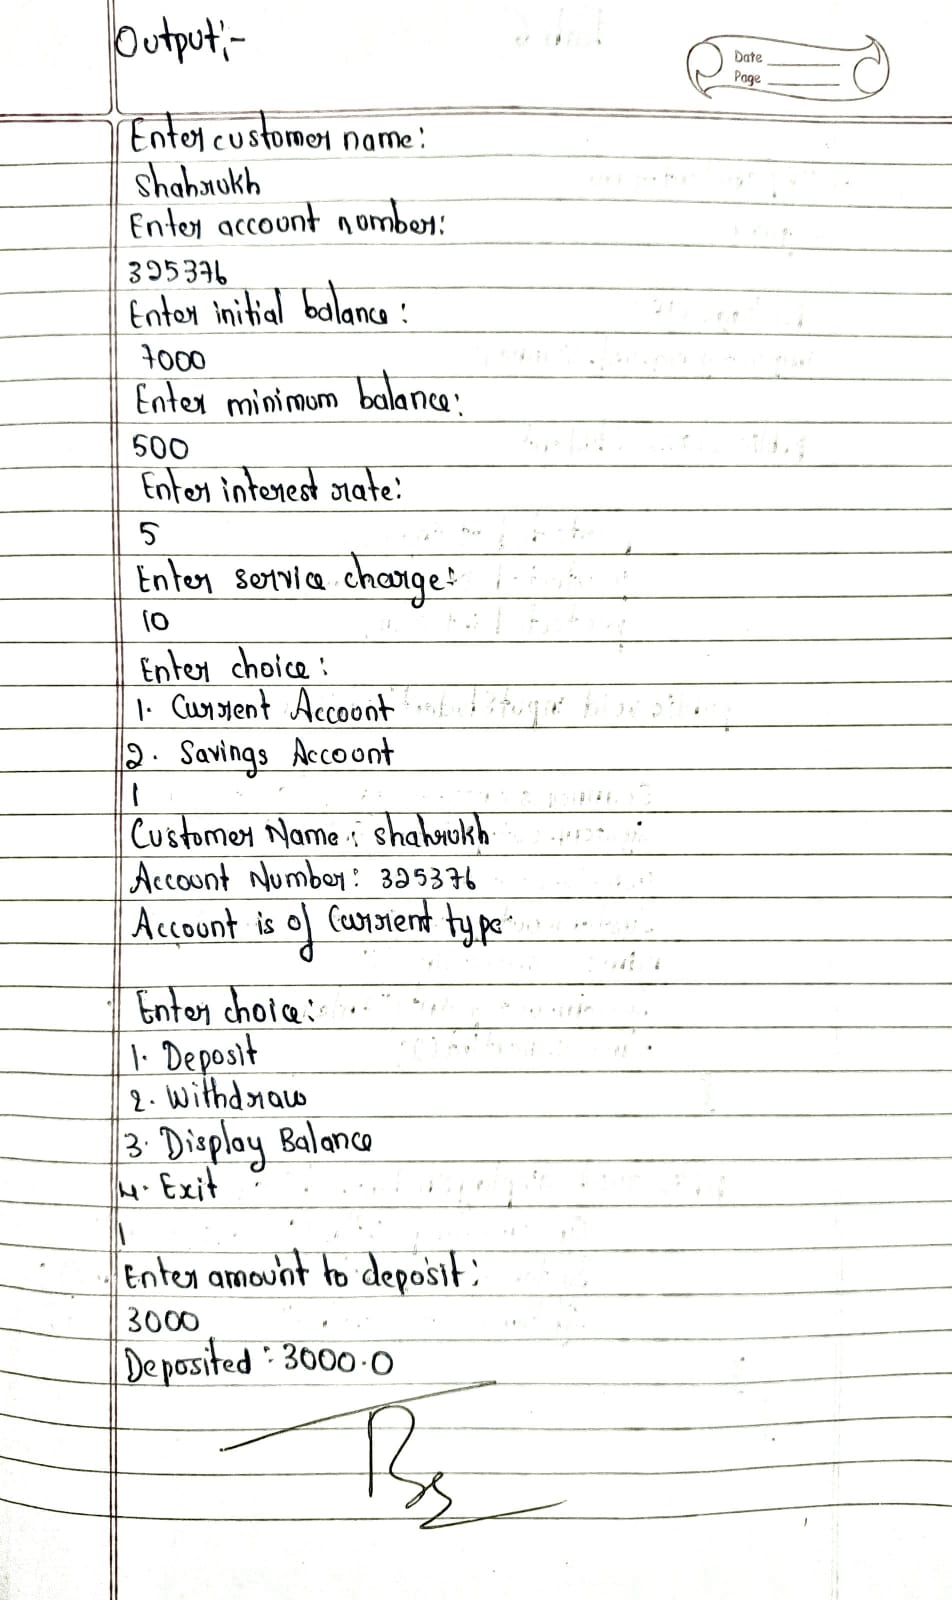 Output:-
Date
Page
Enter customer name:
Shahrukh
Enter account number:
325376
Enter initial balance:
7000
Enter minimum balance:
500
Enter interest rate:
5
Enter service charge:
10
Enter choice:
1. Current Account
2. Savings Account
1
Customer Name: shahrukh
Account Number: 325376
Account is of Current type
Enter choice:
1. Deposit
2. Withdraw
3. Display Balance
4. Exit
1
Enter amount to deposit:
3000
Deposited: 3000.0